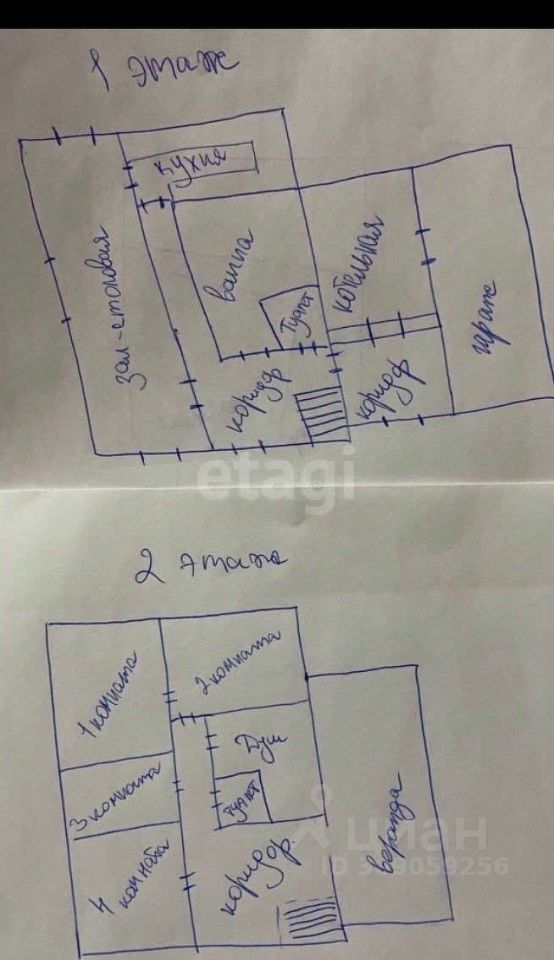 1 этаж
кухня
зал-столовая
ванна
туалет
котельная
гараж
коридор
коридор
etagi
2 этаж
1 комната
2 комната
3 комната
4 комната
Душ
туалет
коридор
веранда
циан